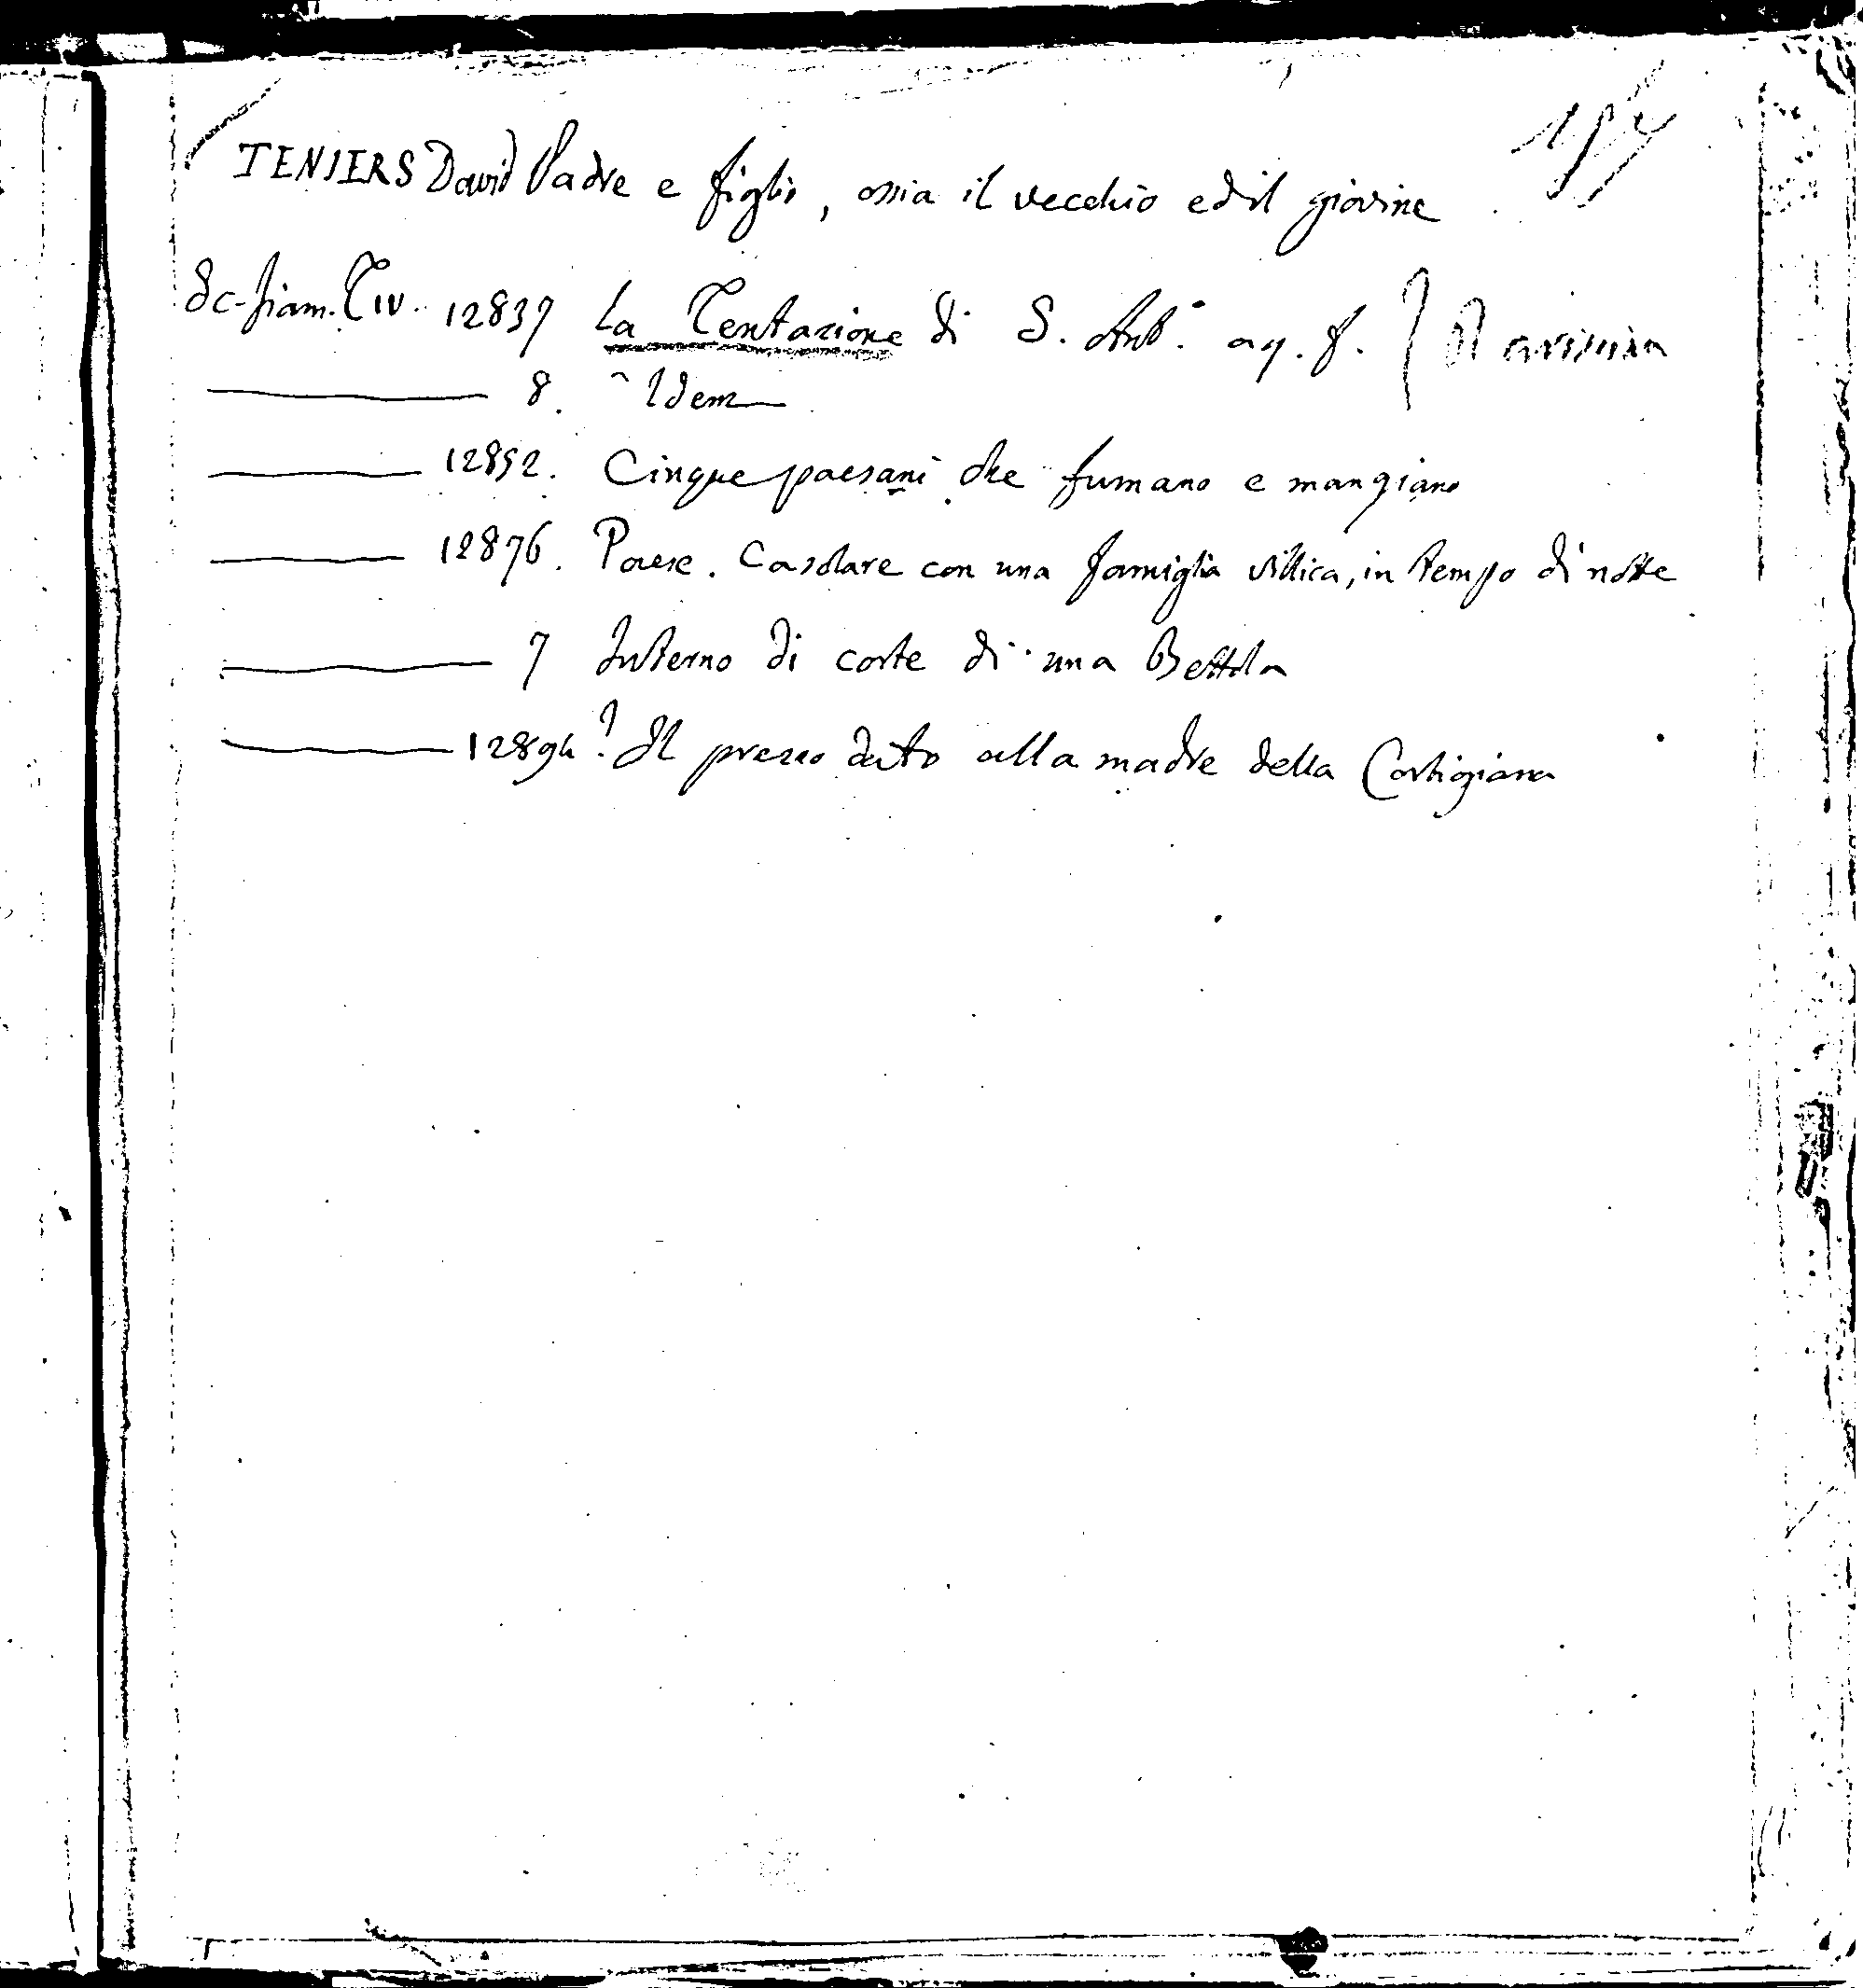 TENIERS David Padre e figlio, ossia il vecchio ed il giovine
Sc-fiam. T IV. 12837 La Tentazione di S. Ant.º aq. f. } Rarissima
8. Idem
12852. Cinque paesani che fumano e mangiano
12876. Paese. Casolare con una famiglia villica, in tempo di notte
7 Interno di corte di una Bettola
1289 ? Il prezzo dato alla madre della Cortigiana